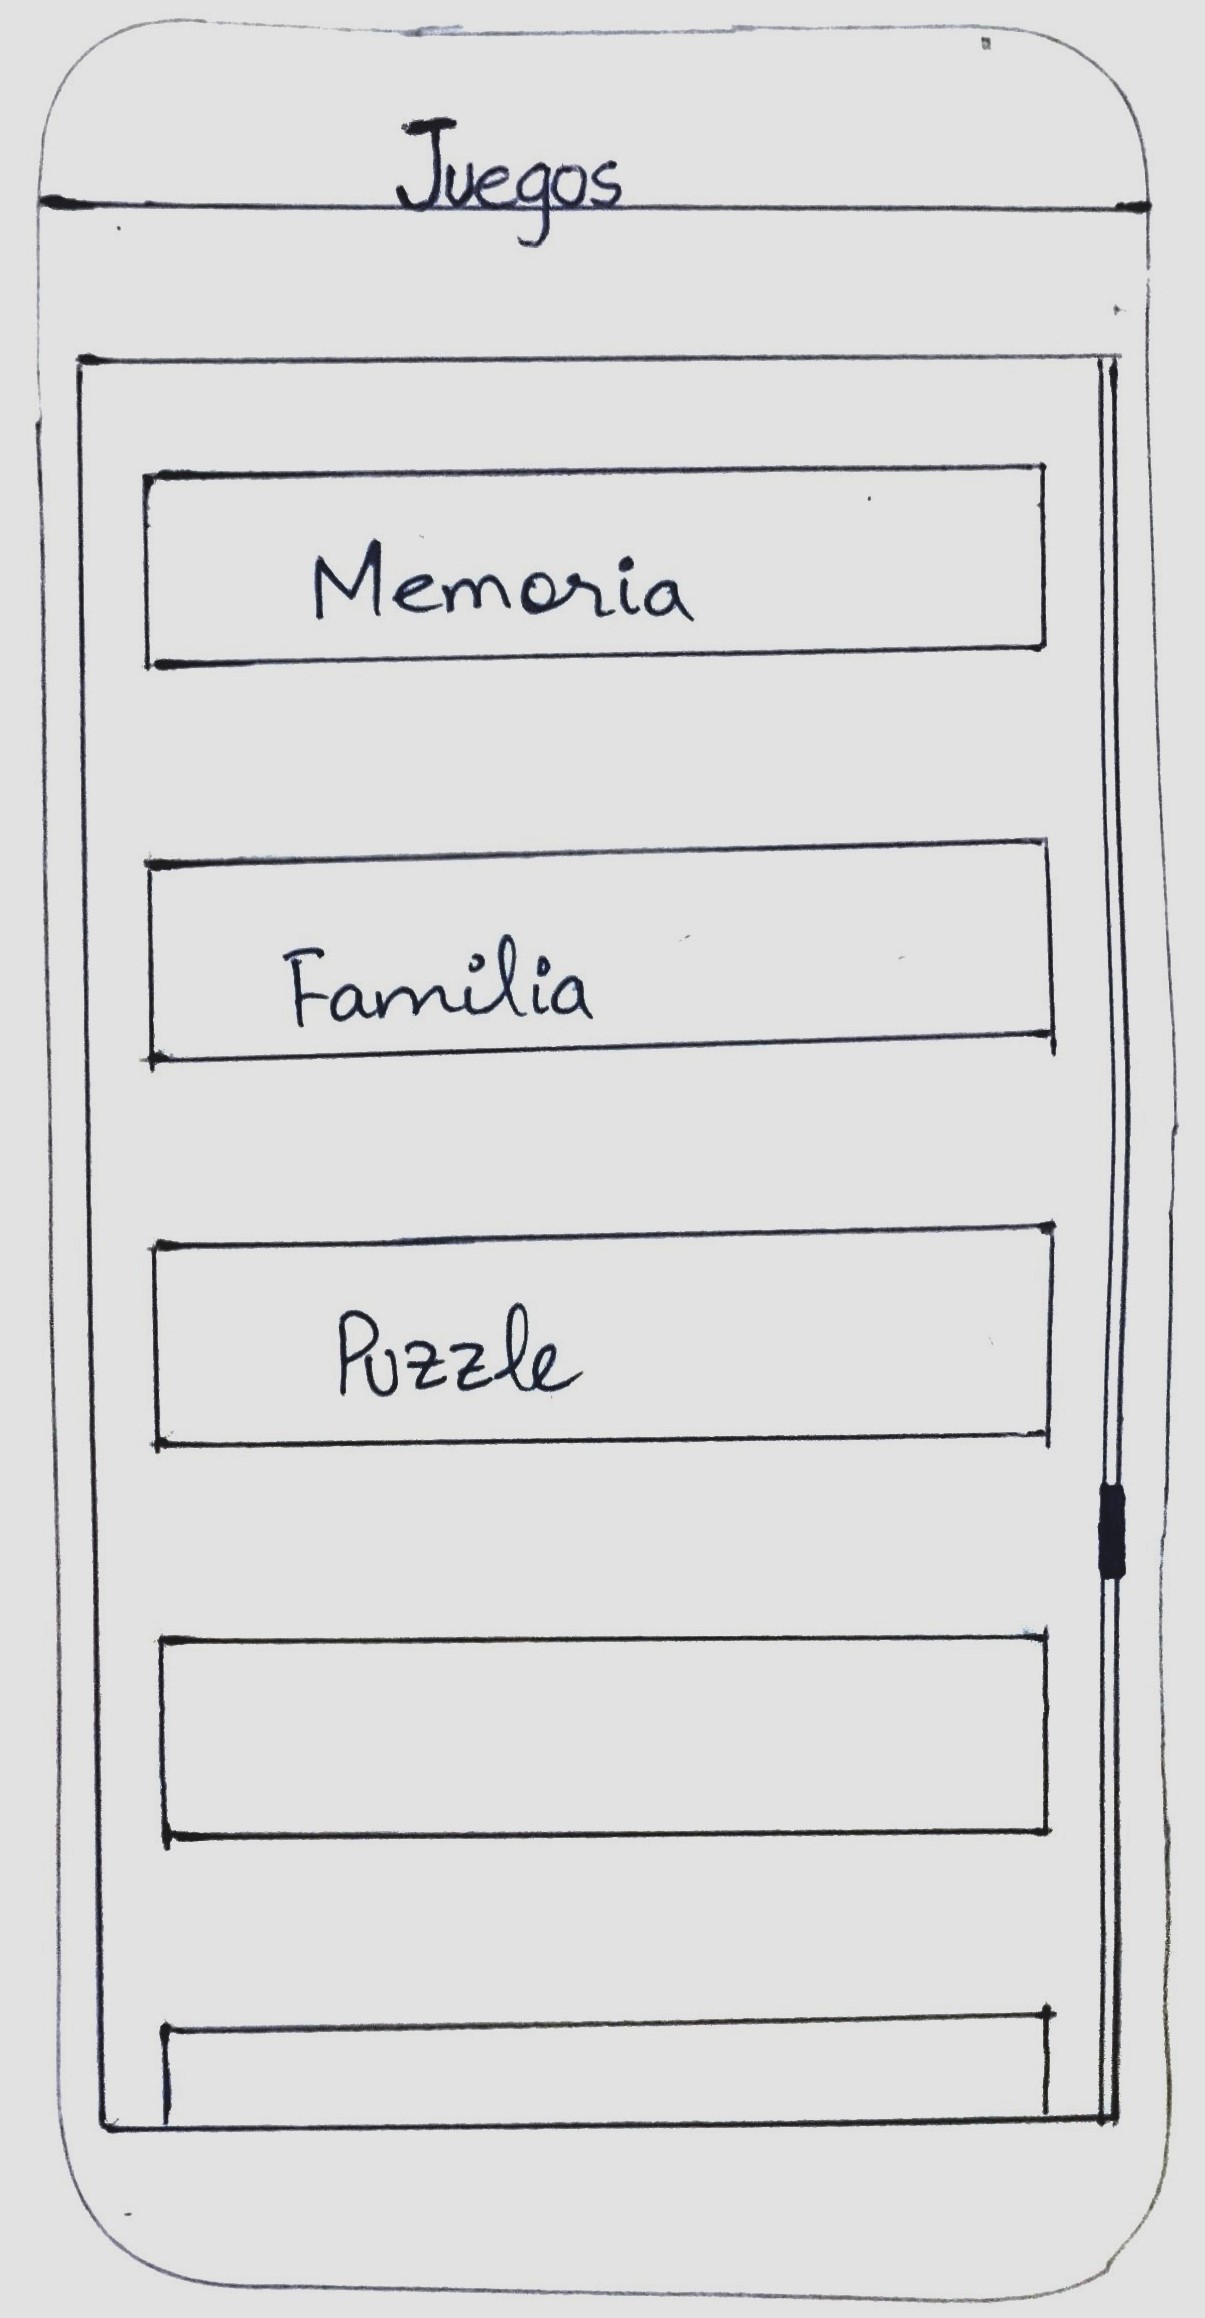 Juegos
Memoria
Familia
Puzzle